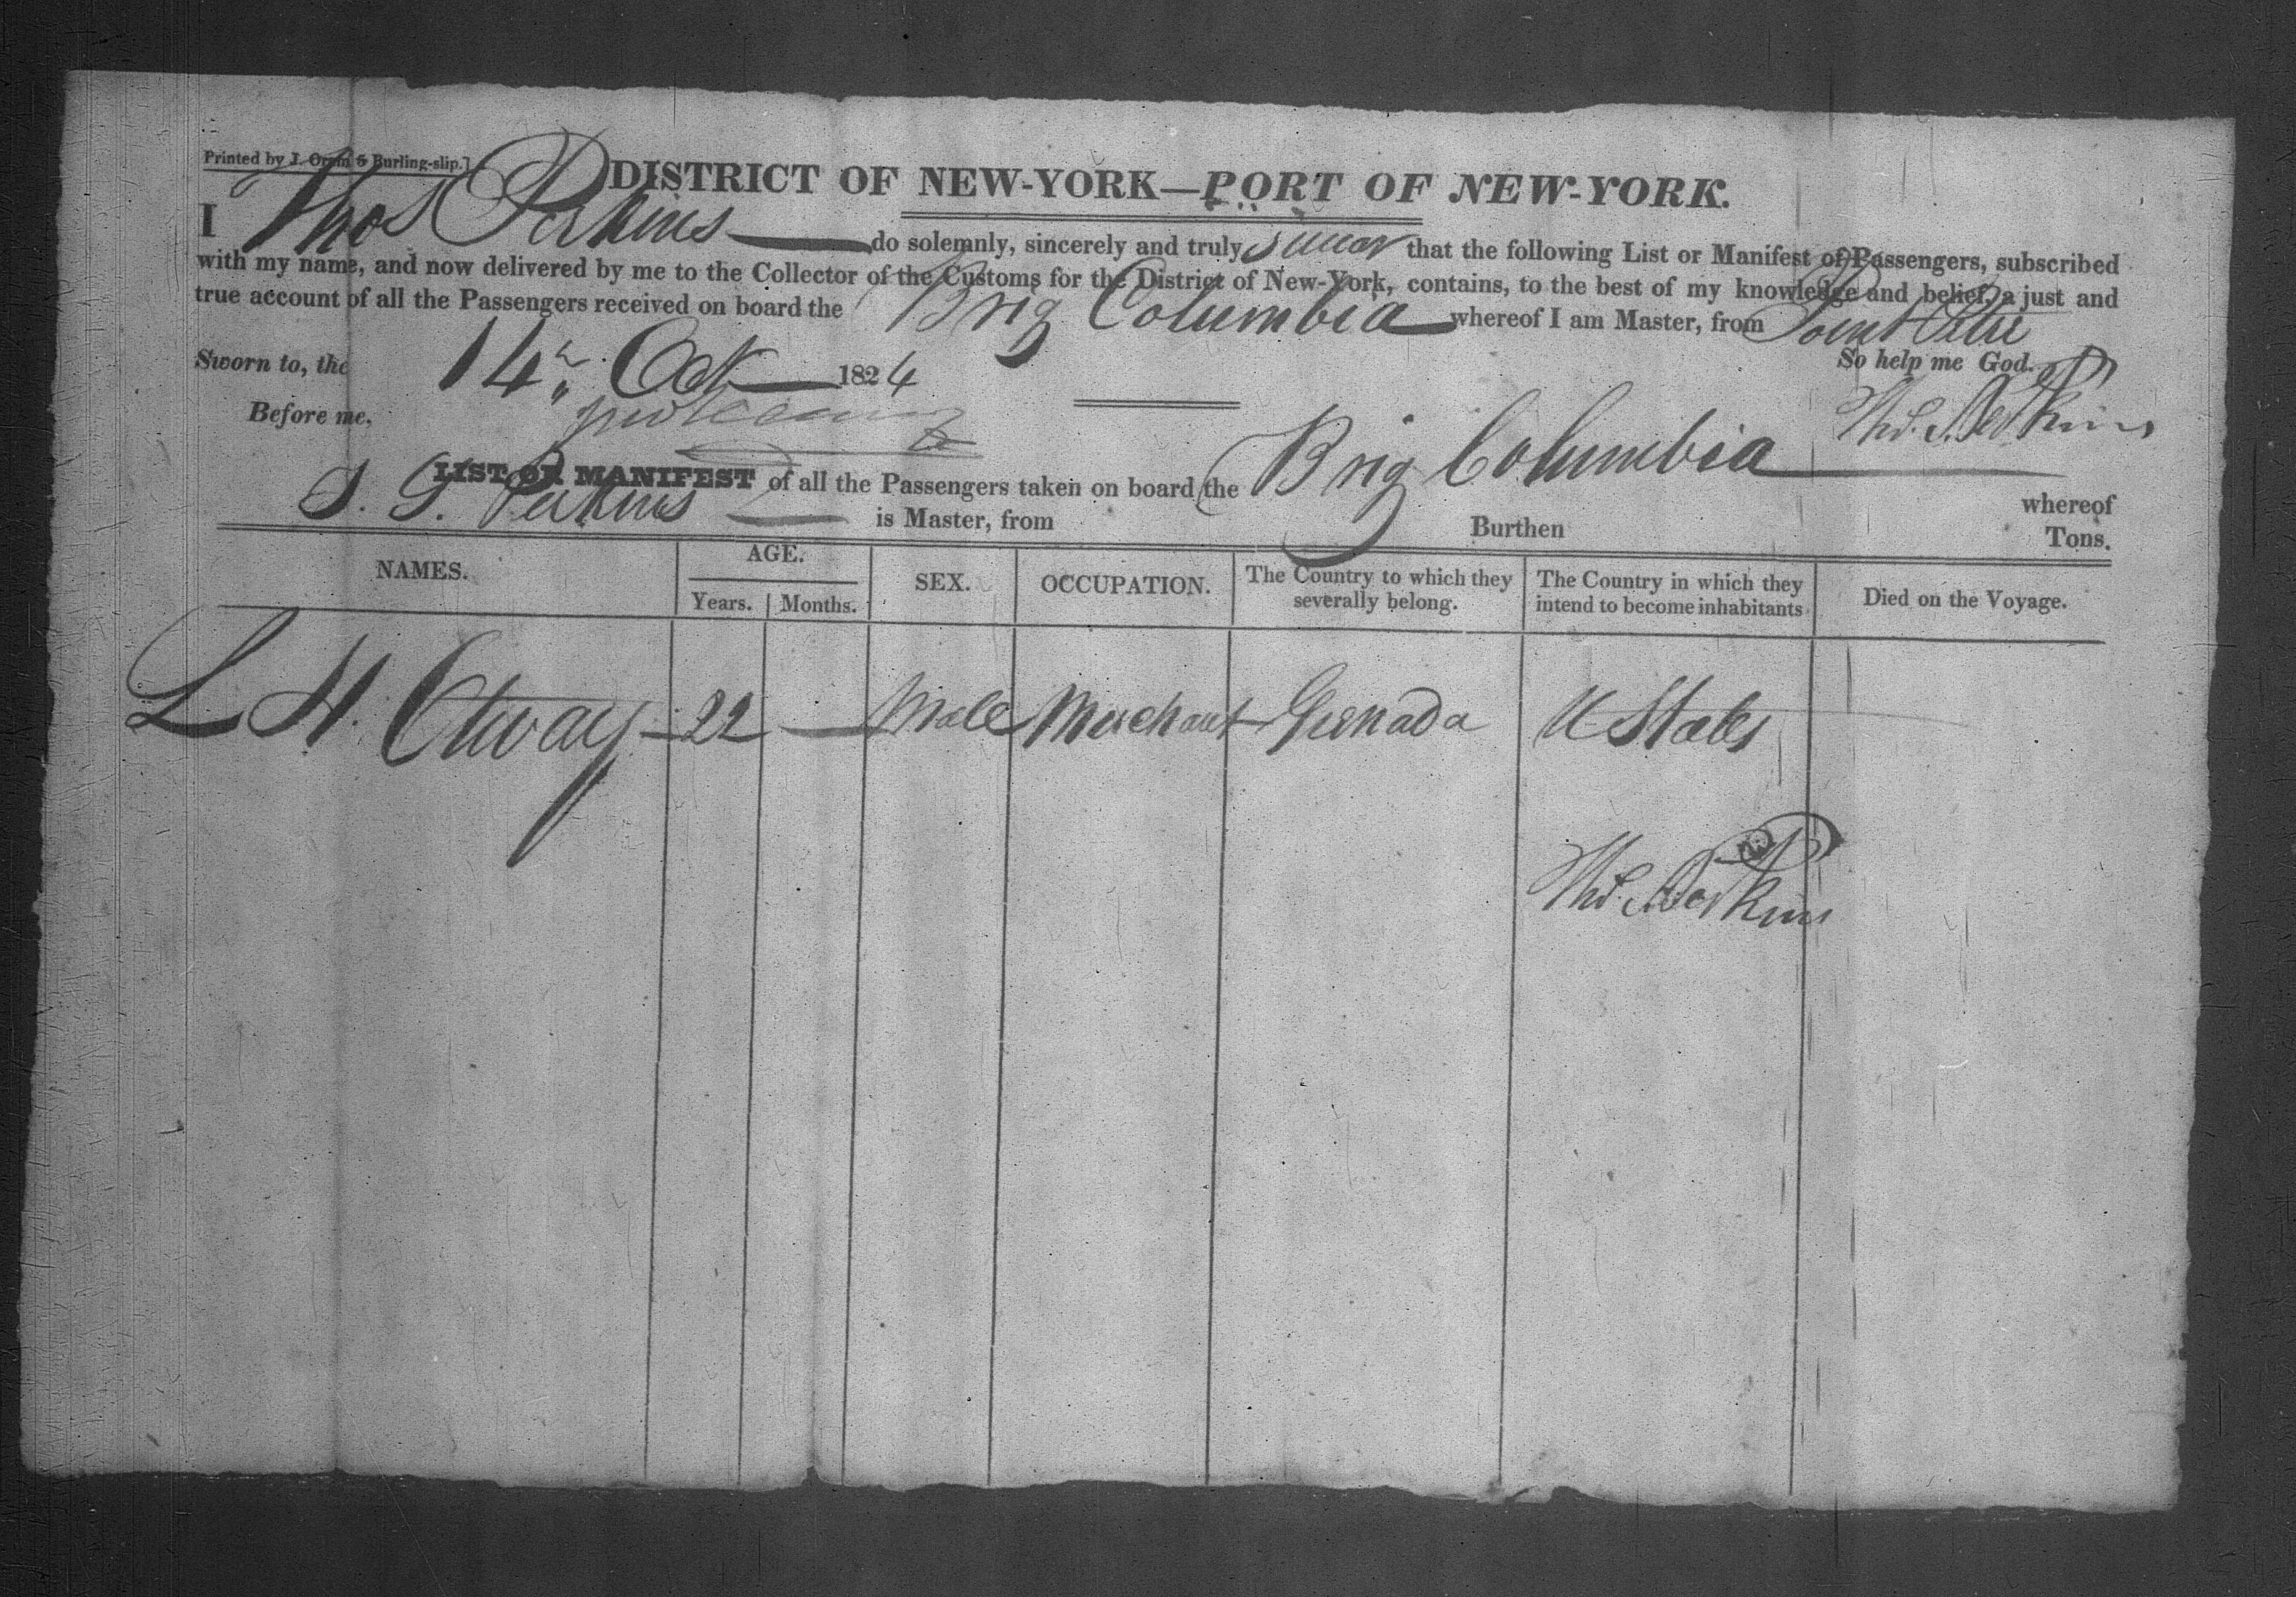 Printed by J. Oram 5 Burling-slip.]
DISTRICT OF NEW-YORK—PORT OF NEW-YORK.
I Thos Perkins do solemnly, sincerely and truly swear that the following List or Manifest of Passengers, subscribed
with my name, and now delivered by me to the Collector of the Customs for the District of New-York, contains, to the best of my knowledge and belief, a just and
true account of all the Passengers received on board the Brig Columbia whereof I am Master, from Point Petre
Sworn to, the 14th Oct 1824 So help me God.
Before me, Thos. S. Perkins
LIST OR MANIFEST of all the Passengers taken on board the Brig Columbia whereof
Perkins is Master, from Burthen Tons.
NAMES. AGE. SEX. OCCUPATION. The Country to which they severally belong. The Country in which they intend to become inhabitants Died on the Voyage.
Years. Months.
L H. Otway 22 Male Merchant Grenada U States
Thos. S. Perkins